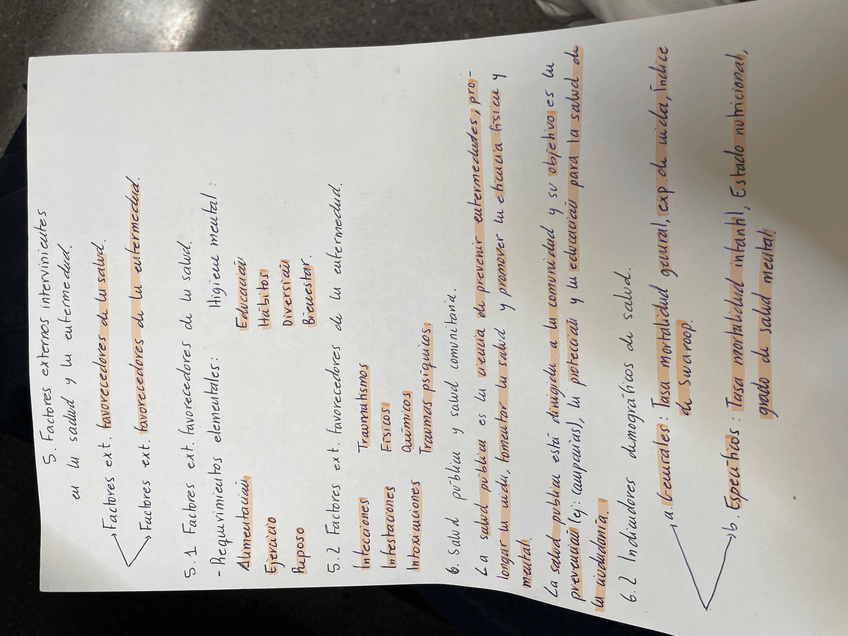 5. Factores externos intervinientes
en la salud y la enfermedad.
Factores ext. favorecedores de la salud.
Factores ext. favorecedores de la enfermedad.
5.1 Factores ext. favorecedores de la salud.
- Requirimientos elementales: Higiene mental:
Alimentación Educación
Ejercicio Hábitos
Reposo Diversión
Bienestar.
5.2 Factores ext. favorecedores de la enfermedad.
Infecciones Traumatismos
Infestaciones Físicos
Intoxicaciones Químicos
Traumas psíquicos.
6. Salud pública y salud comunitaria.
La salud pública es la ciencia de prevenir enfermedades, pro-
longar la vida, fomentar la salud y promover la eficacia física y
mental.
La salud pública está dirigida a la comunidad y su objetivo es la
prevención (ej: campañas), la protección y la educación para la salud de
la ciudadanía.
6.2 Indicadores demográficos de salud.
a. Generales: Tasa mortalidad general, exp de vida, índice
de Swaroop.
b. Específicos: Tasa mortalidad infantil, Estado nutricional,
grado de salud mental.